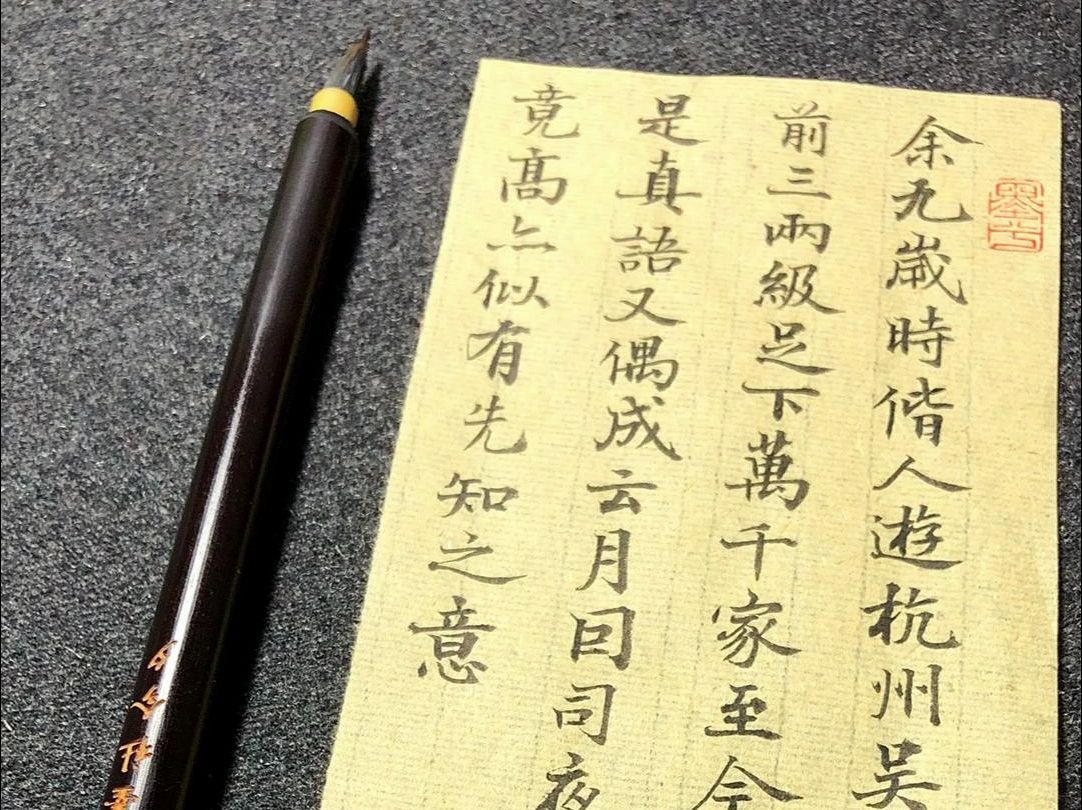 余九歲時偕人遊杭州吴
前三兩級足下萬千家至今
是真語又偶成云月囙司夜
竟髙亦似有先知之意